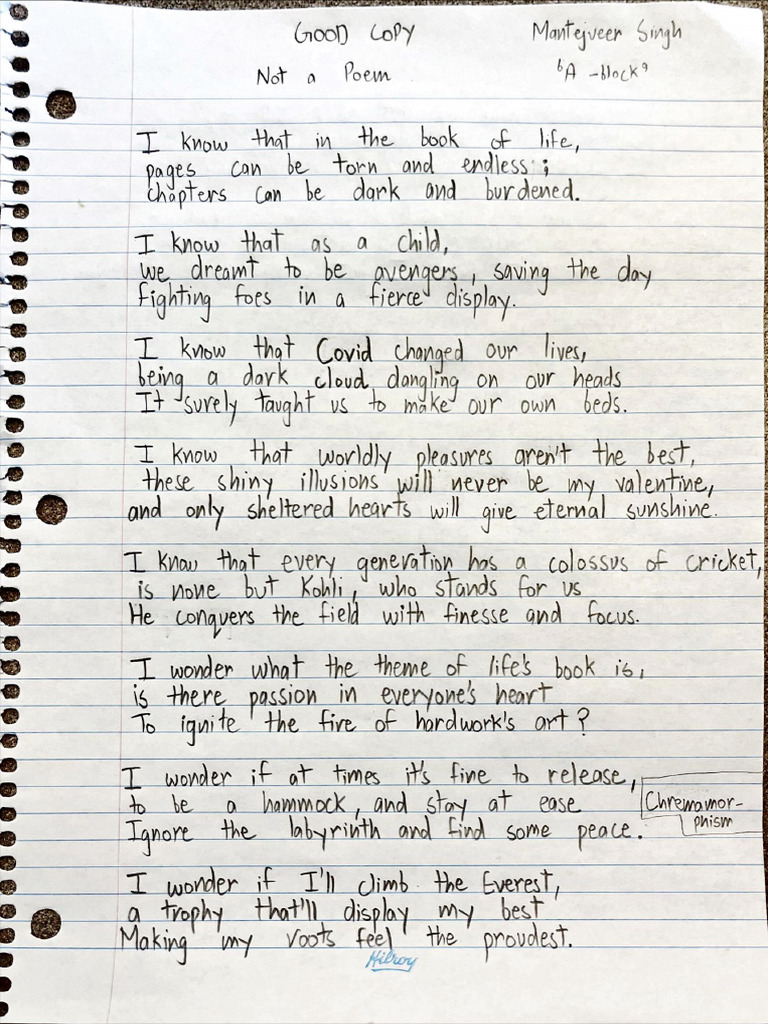 GOOD COPY
Mantejveer Singh
Not a Poem
"A-block"
I know that in the book of life,
pages can be torn and endless;
chapters can be dark and burdened.
I know that as a child,
we dreamt to be avengers, saving the day
fighting foes in a fierce display.
I know that Covid changed our lives,
being a dark cloud dangling on our heads
It surely taught us to make our own beds.
I know that worldly pleasures aren't the best,
these shiny illusions will never be my valentine,
and only sheltered hearts will give eternal sunshine.
I know that every generation has a colossus of cricket,
is none but Kohli, who stands for us
He conquers the field with finesse and focus.
I wonder what the theme of life's book is,
is there passion in everyone's heart
To ignite the fire of hardwork's art?
I wonder if at times it's fine to release,
to be a hammock, and stay at ease
Ignore the labyrinth and find some peace.
Chremamor-
phism
I wonder if I'll climb the Everest,
a trophy that'll display my best
Making my roots feel the proudest.
Hilroy